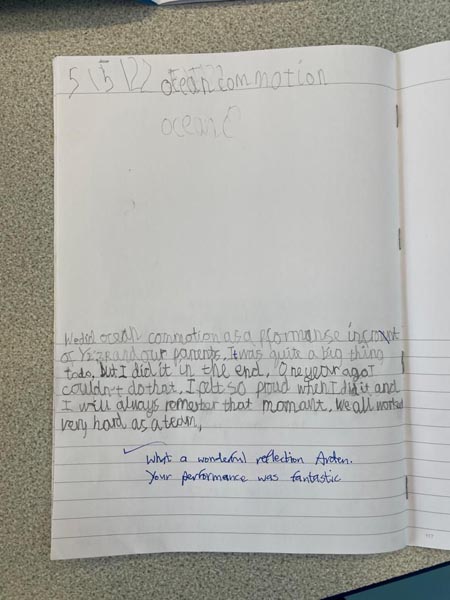 5 \ 5 \ 22 ocean commotion
ocean C
We did ocean commotion as a pformanse in front
of Yr 2 and our parents. It was quite a big thing
todo. but I did it in the end. One year ago I
couldn't do that. I felt so proud when I did it and
I will always remember that momant. We all worked
very hard as a team,
What a wonderful reflection Arden.
Your performance was fantastic